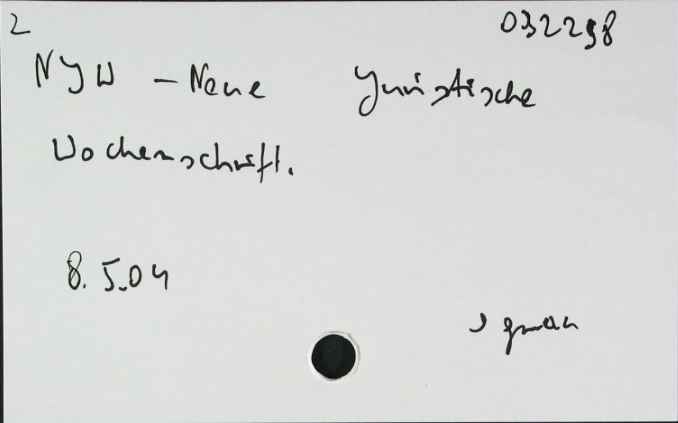 2
032298
NJW - Neue Juristische
Wochenschrift.
8.5.04